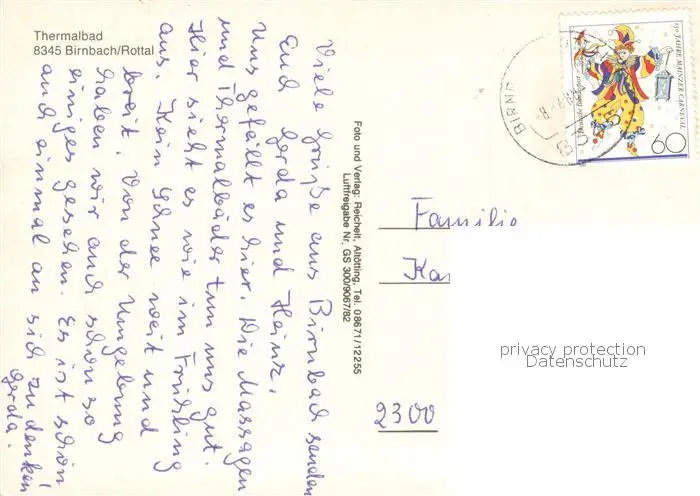 Thermalbad
8345 Birnbach/Rottal
Viele Grüße aus Birnbach senden
Euch Gerda und Heinz.
Uns gefällt es hier. Die Massagen
und Thermalbäder tun uns gut.
Hier sieht es wie im Frühling
aus. Kein Schnee weit und
breit. Von der Umgebung
haben wir auch schon so
einiges gesehen. Es ist schön
auch einmal an sich zu denken!
Gerda.
Foto und Verlag: Reichelt, Altötting, Tel. 08671/12255
Luftfreigabe Nr. GS 300/9067/82
150 JAHRE MAINZER CARNEVAL
Deutsche Bundespost
60
BIRNB
Familie
Ka
2300
privacy protection
Datenschutz